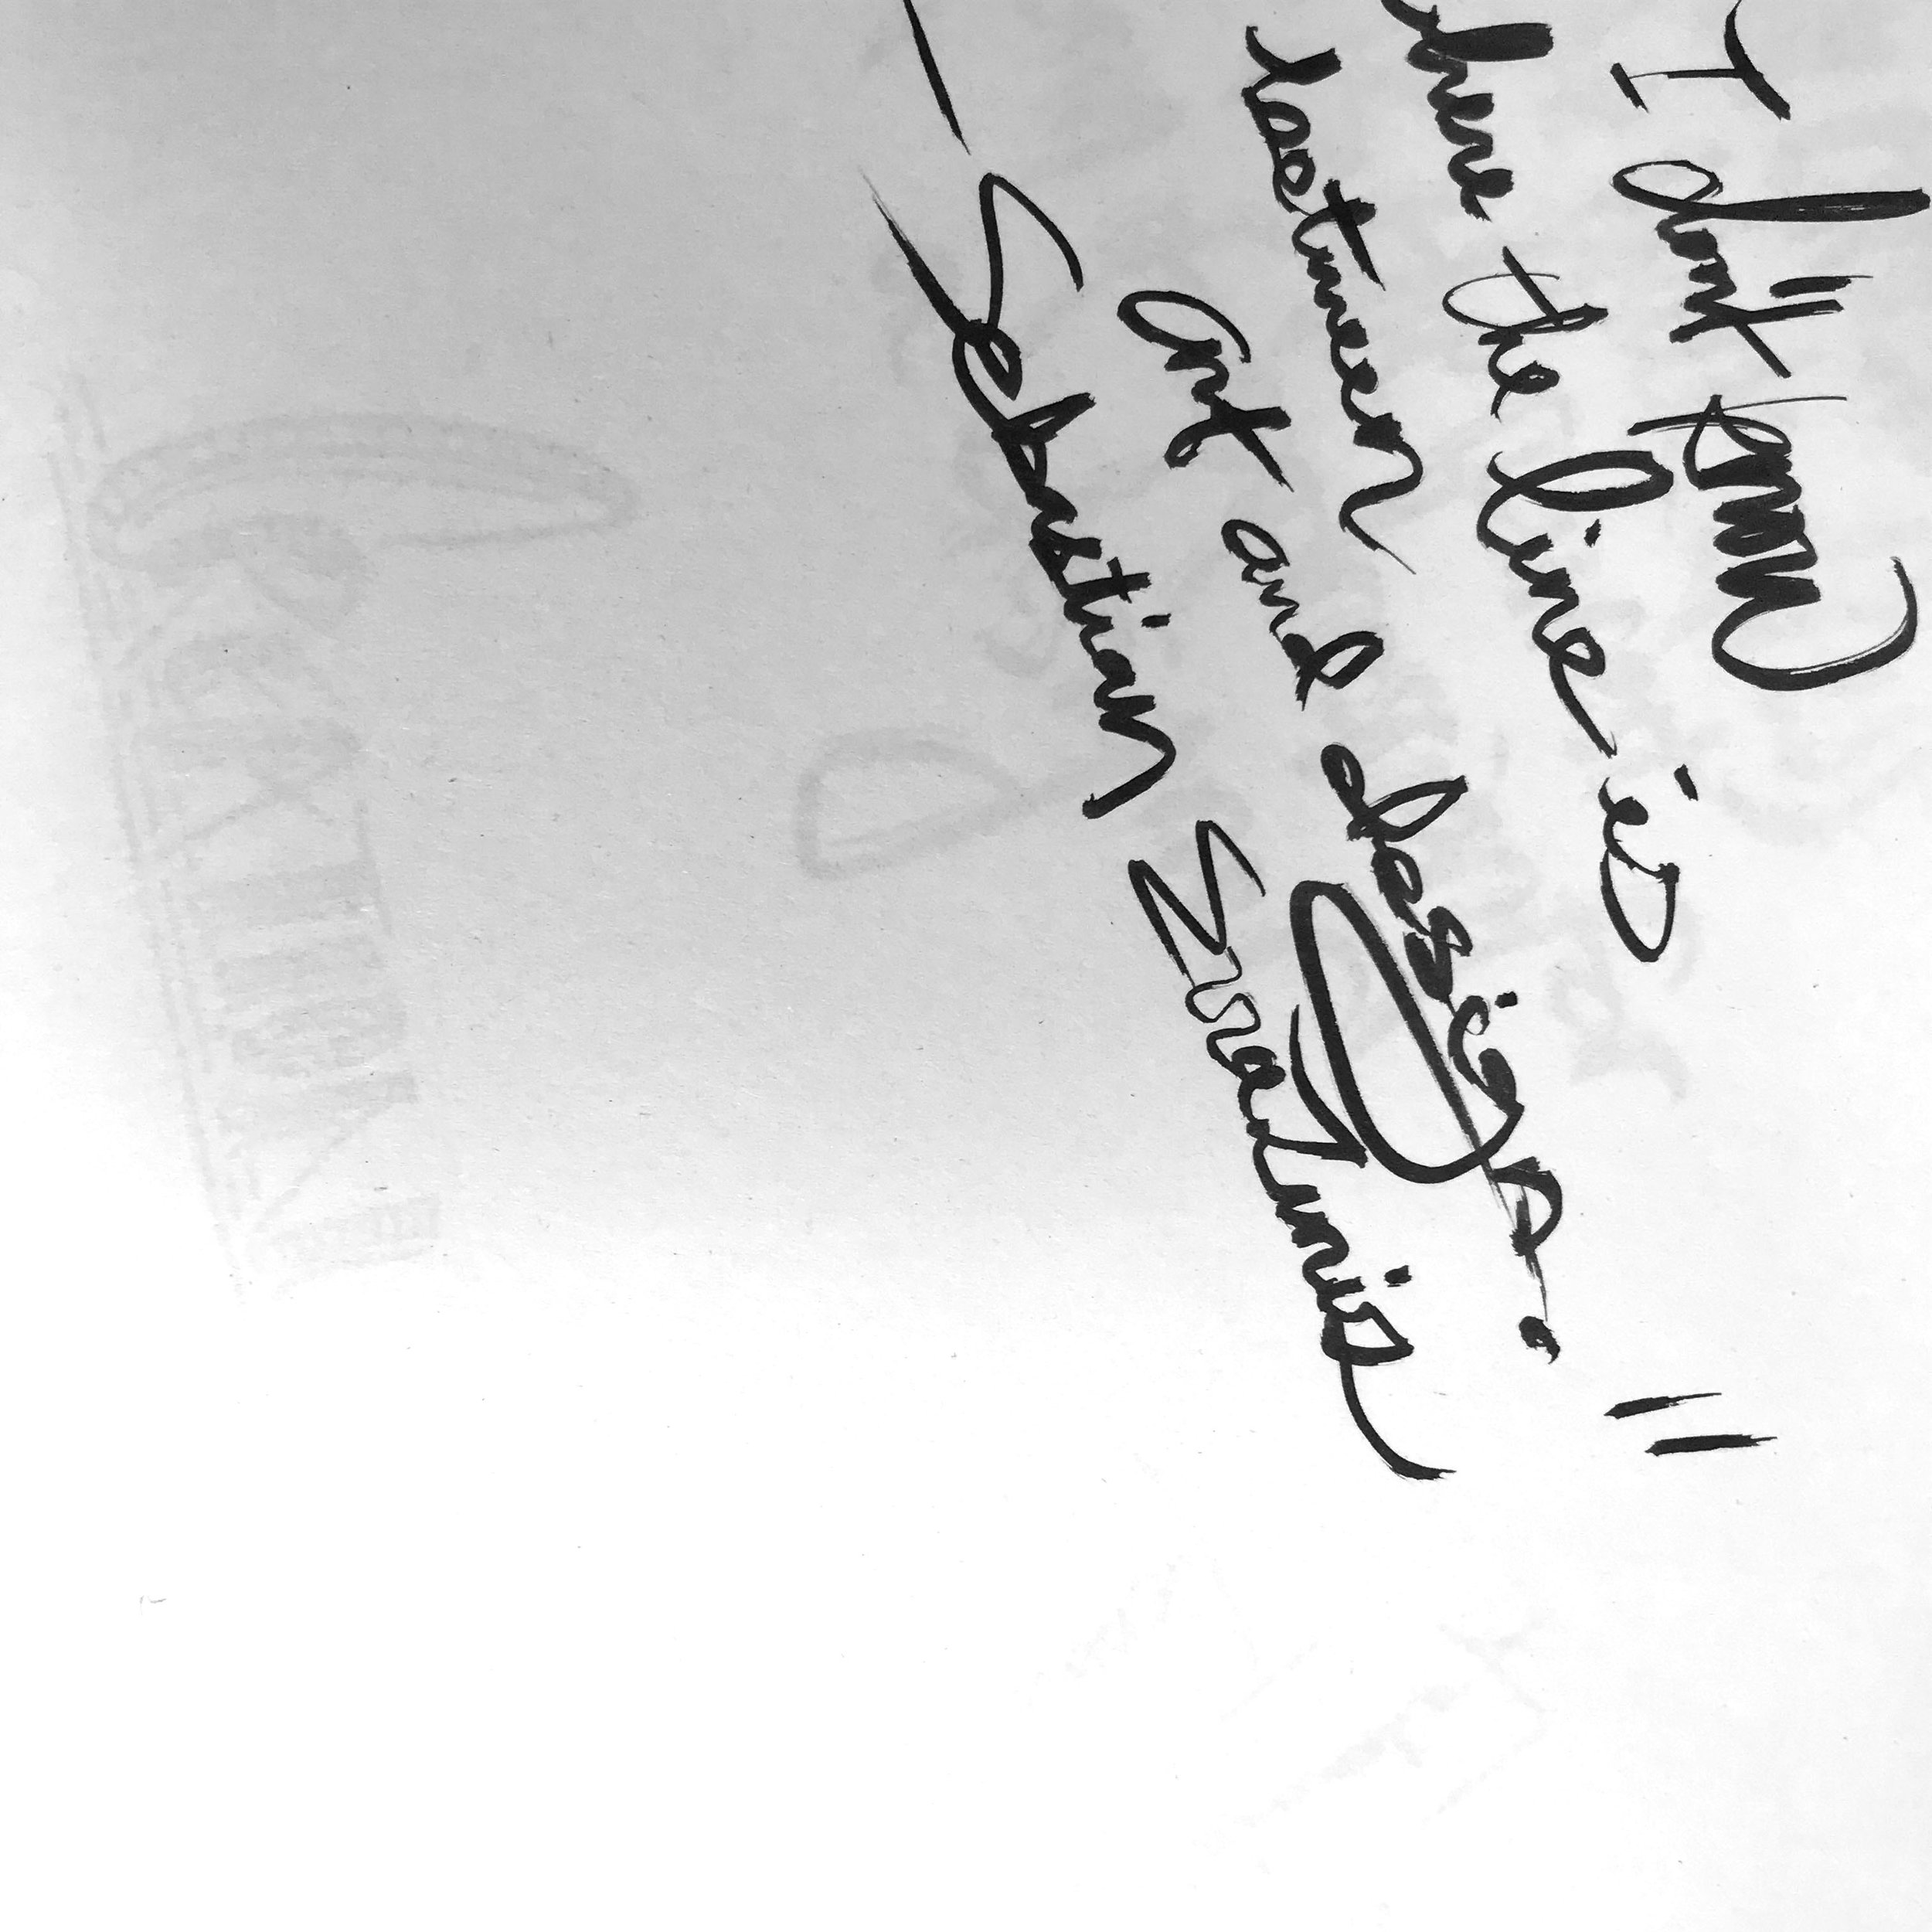 I don't know
where the line is
between
Art and design."
— Sebastian Errazuriz